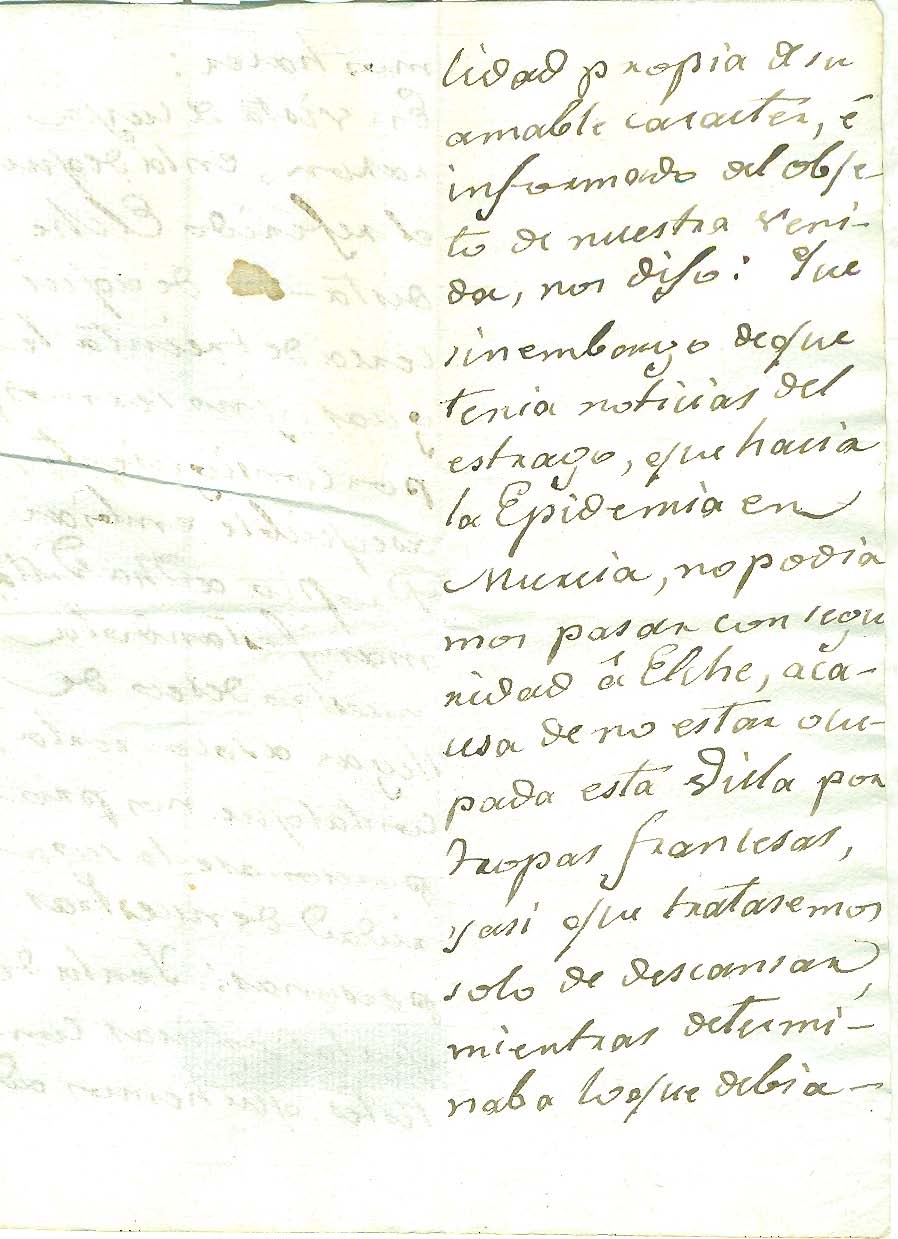 lidad propia de su
amable caracter, é
informado del obje-
to de nuestra veni-
da, nos dijo: Que
sinembargo deque
tenia noticias del
estrago, que hacia
la Epidemia en
Murcia, nopodia
mos pasar con segu
ridad á Elche, aca-
usa de no estar ocu-
pada esta Villa por
tropas francesas,
yasi que tratasemos
solo de descansar,
mientras determi-
naba loque debia-